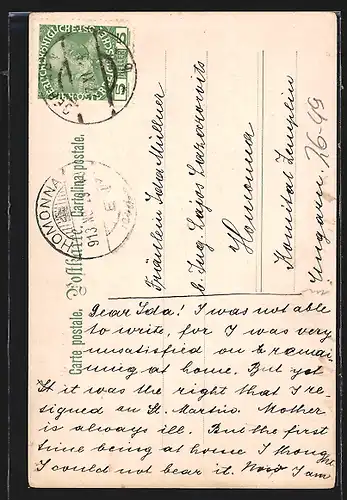 Carte postale. Postkarte Cartolina postale.
HOMONNA
913
5
Fräulein Ida Müllner
b. Ing. Lajos Lazarovits
Homonna
Komitat Zemplin
Ungarn
26-49
Dear Ida! I was not able
to write, for I was very
unsatisfied on remai-
ning at home. But yet
it was the right that I re-
signed on St. Martin. Mother
is always ill. But the first
time being at home I thought
I could not bear it. Now I am